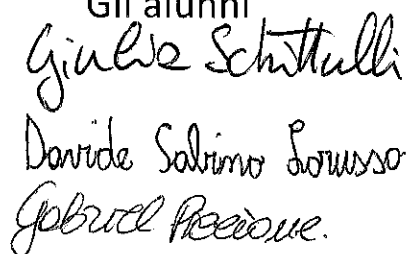 Gli alunni
Giulia Schittulli
Davide Sabino Lorusso
Gabriel Piccione.